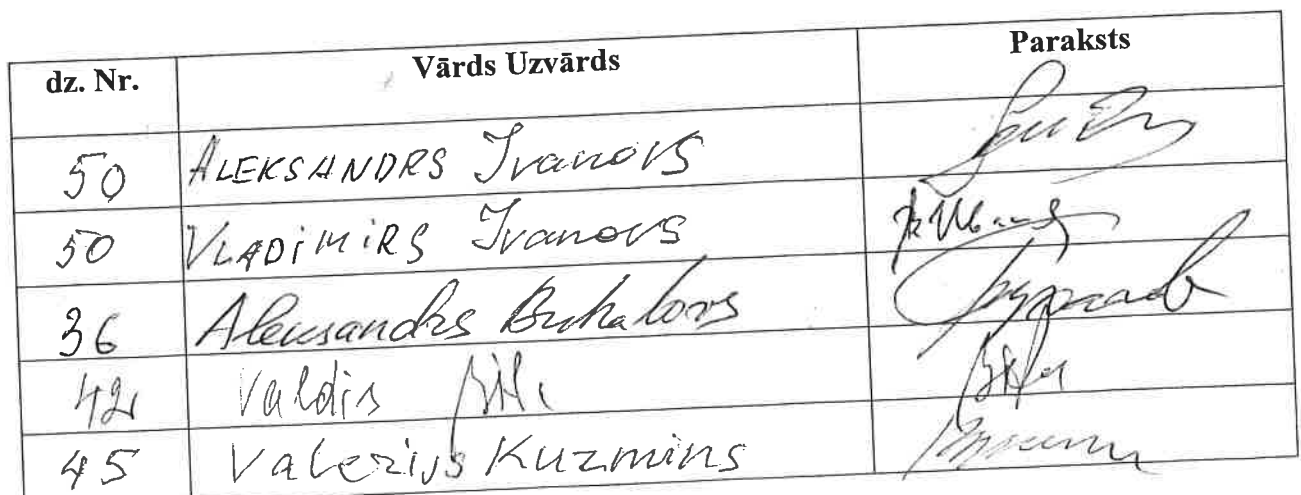 dz. Nr. Vārds Uzvārds Paraksts
50 ALEKSANDRS Ivanovs
50 VLADiMiRS Ivanovs
36 Aleksandrs Buhalovs
42 Valdis
45 Valerijs Kuzmins